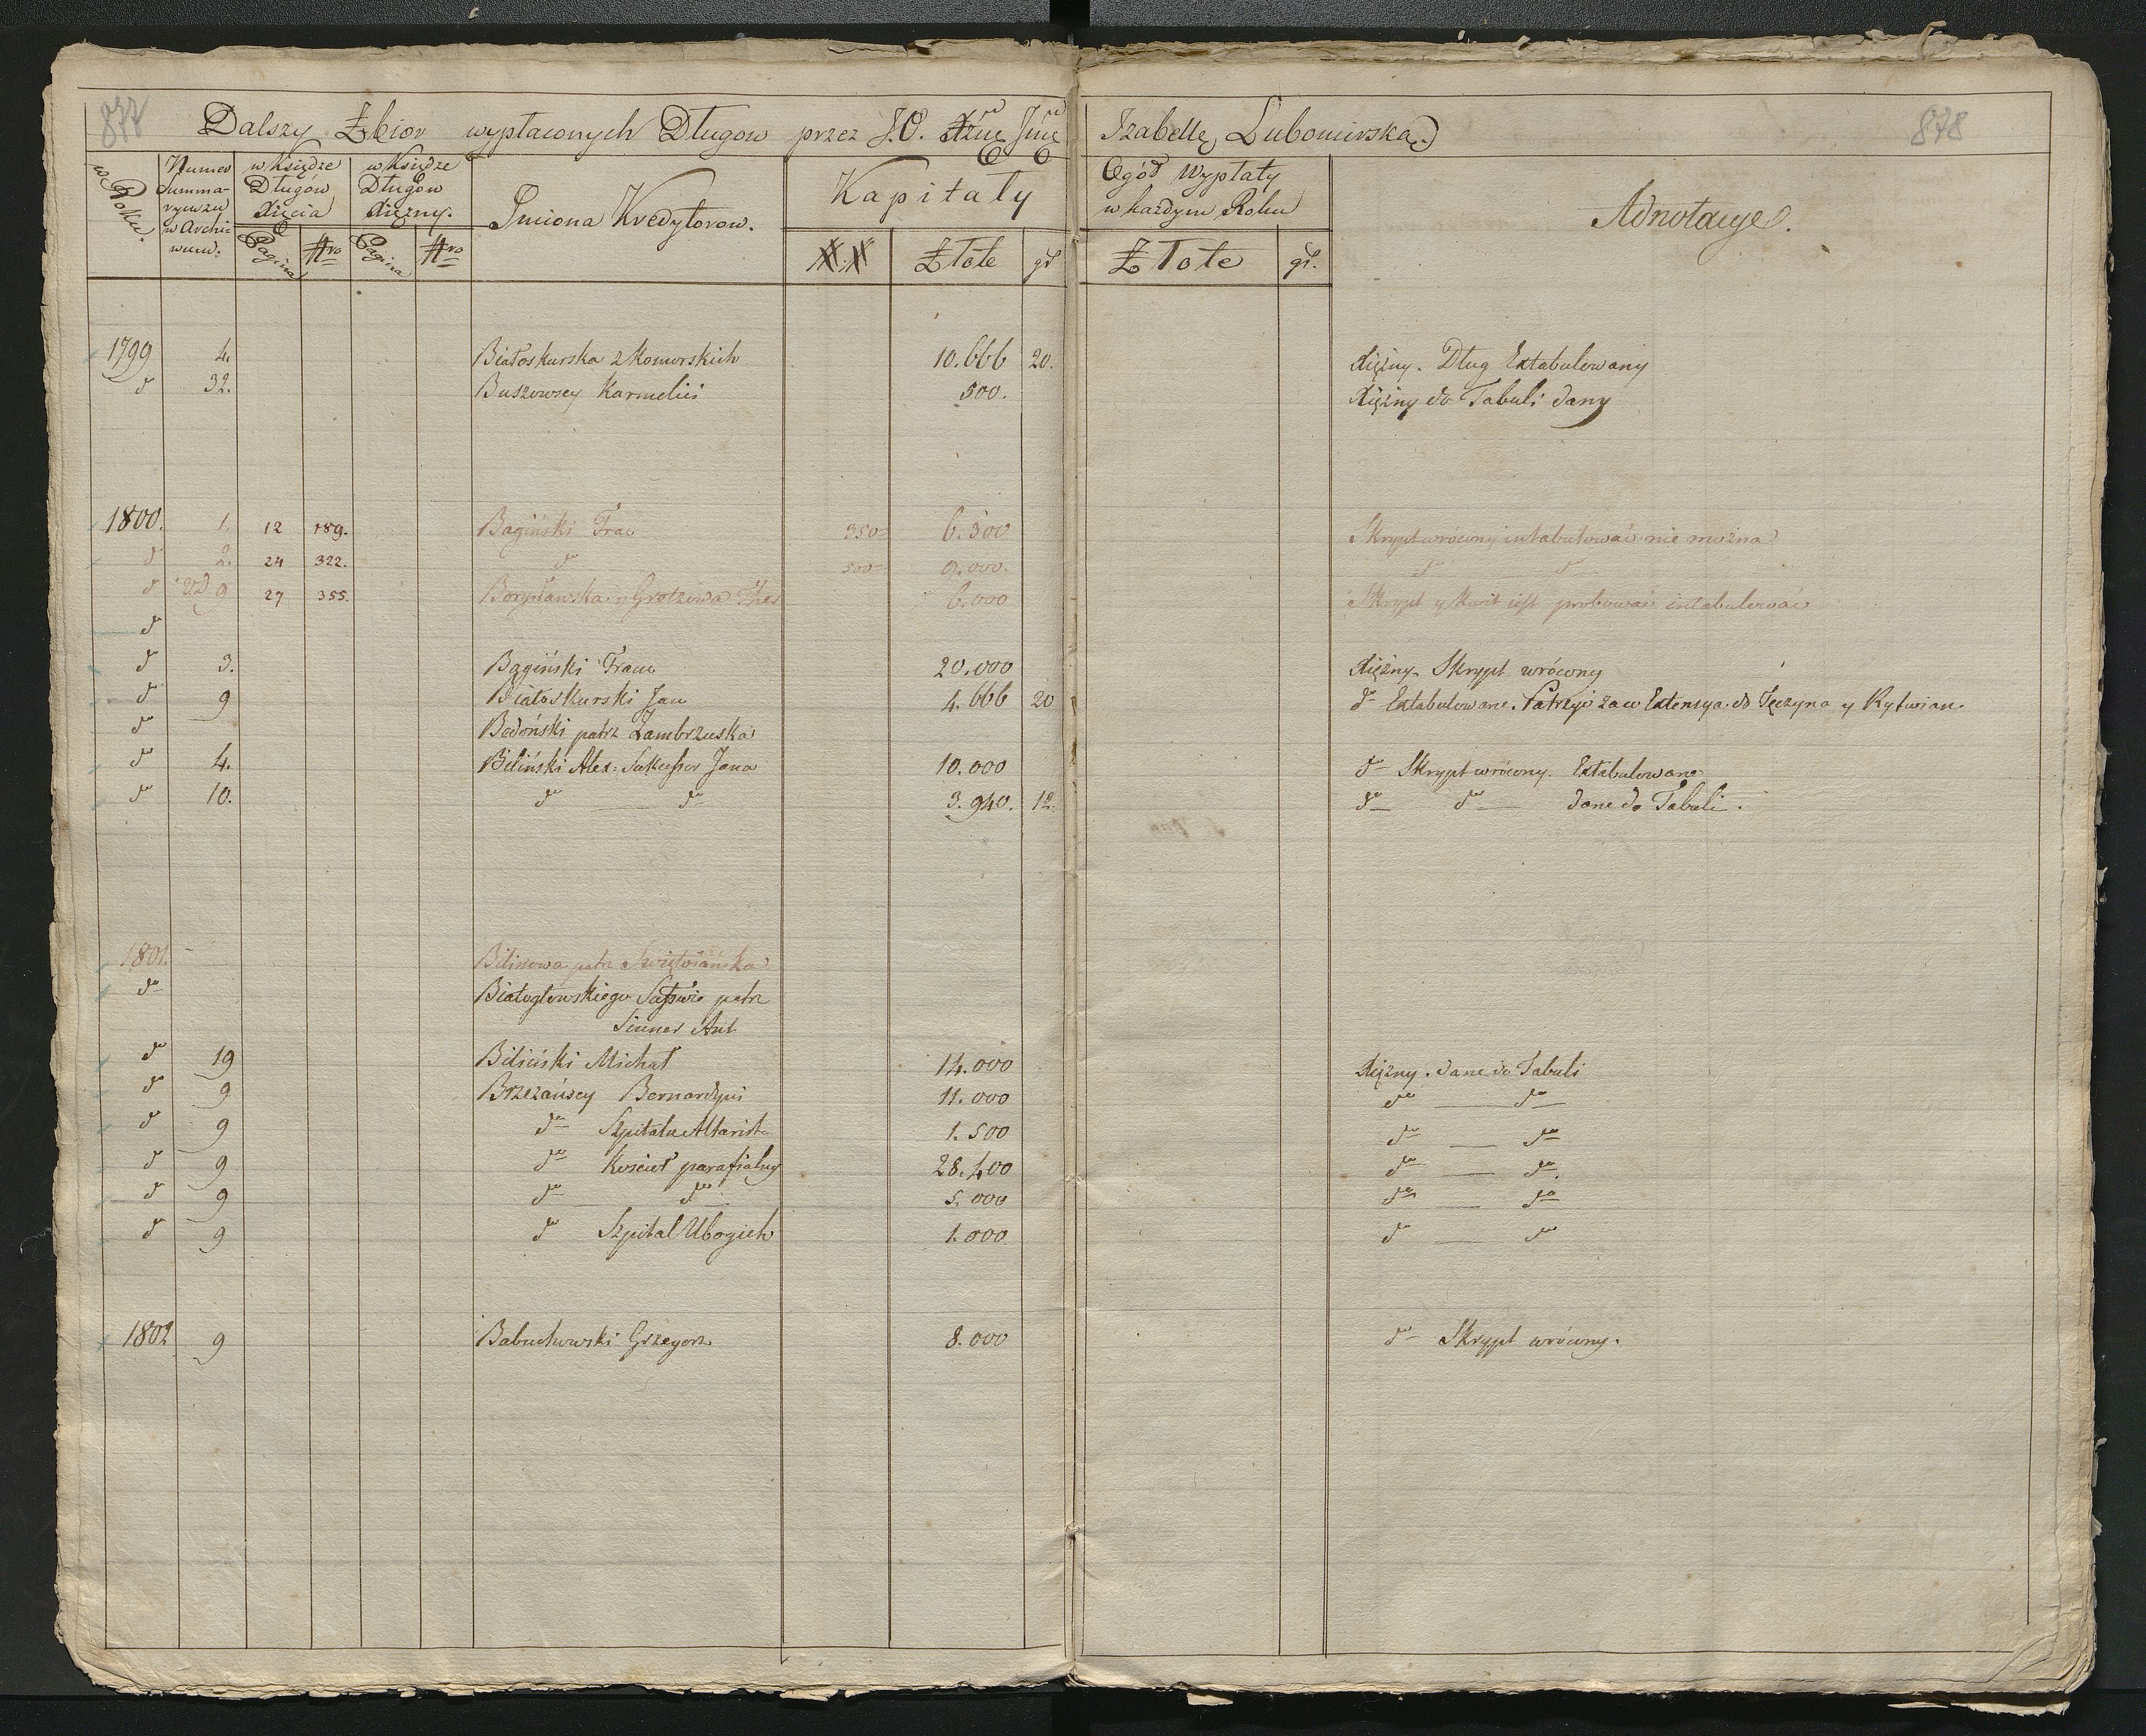 877 Dalszy Zbior wypłaconych Długow przez J.O. Xżnę Jmć Izabellę Lubomirską 878
w Roku. Numer Summaryuszu w Archiwum. w Księdze Długów Xięcia w Księdze Długów Xiężny. Imiona Kredytorow. Kapitały Ogół Wypłaty w każdym Roku Adnotacye.
Pagina Nro Pagina Nro Złote gr. Złote gr.
1799 4. Białoskurska z Komorskich 10.666 20. Xiężny. Dług Extabulowany
do 32. Buszowscy Karmelici 500. Xiężny do Tabuli dany
1800. 1. 12 189. Bagiński Fran 350 6.300 Skrypt wrócony intabulować nie można
do 2. 24 322. do 500 9.000. do do
do 9 27 355. 6.000 Skrypt y Kwit jest probować intabulować
do
do 3. Bągiński Franc 20.000 Xiężny. Skrypt wrócony
do 9 Białoskurski Jan 4.666 20 do Extabulowane. Extensya do Tęczyna y Rytwian.
do Bedoński patrz Zambrzuska
do 4. Biliński Alex: Sukcessor Jana 10.000 do Skrypt wrócony. Extabulowane
do 10. do do 3.940. 12. do do dane do Tabuli.
1801. Bilinowa patrz
do Białogłowskiego patrz
Sinner Ant
do 19 Biliński Michał 14.000 Xiężny. dane do Tabuli
do 9 Brzezańscy Bernardyni 11.000 do do
do 9 do Szpitalu Altaryst 1.500 do do
do 9 do Kościoł parafialny 28.400 do do.
do 9 do do 5.000 do do
do 9 do Szpital Ubogich 1.000 do do
1802 9 Babuchowski Grzegorz 8.000 do Skrypt wrócony.